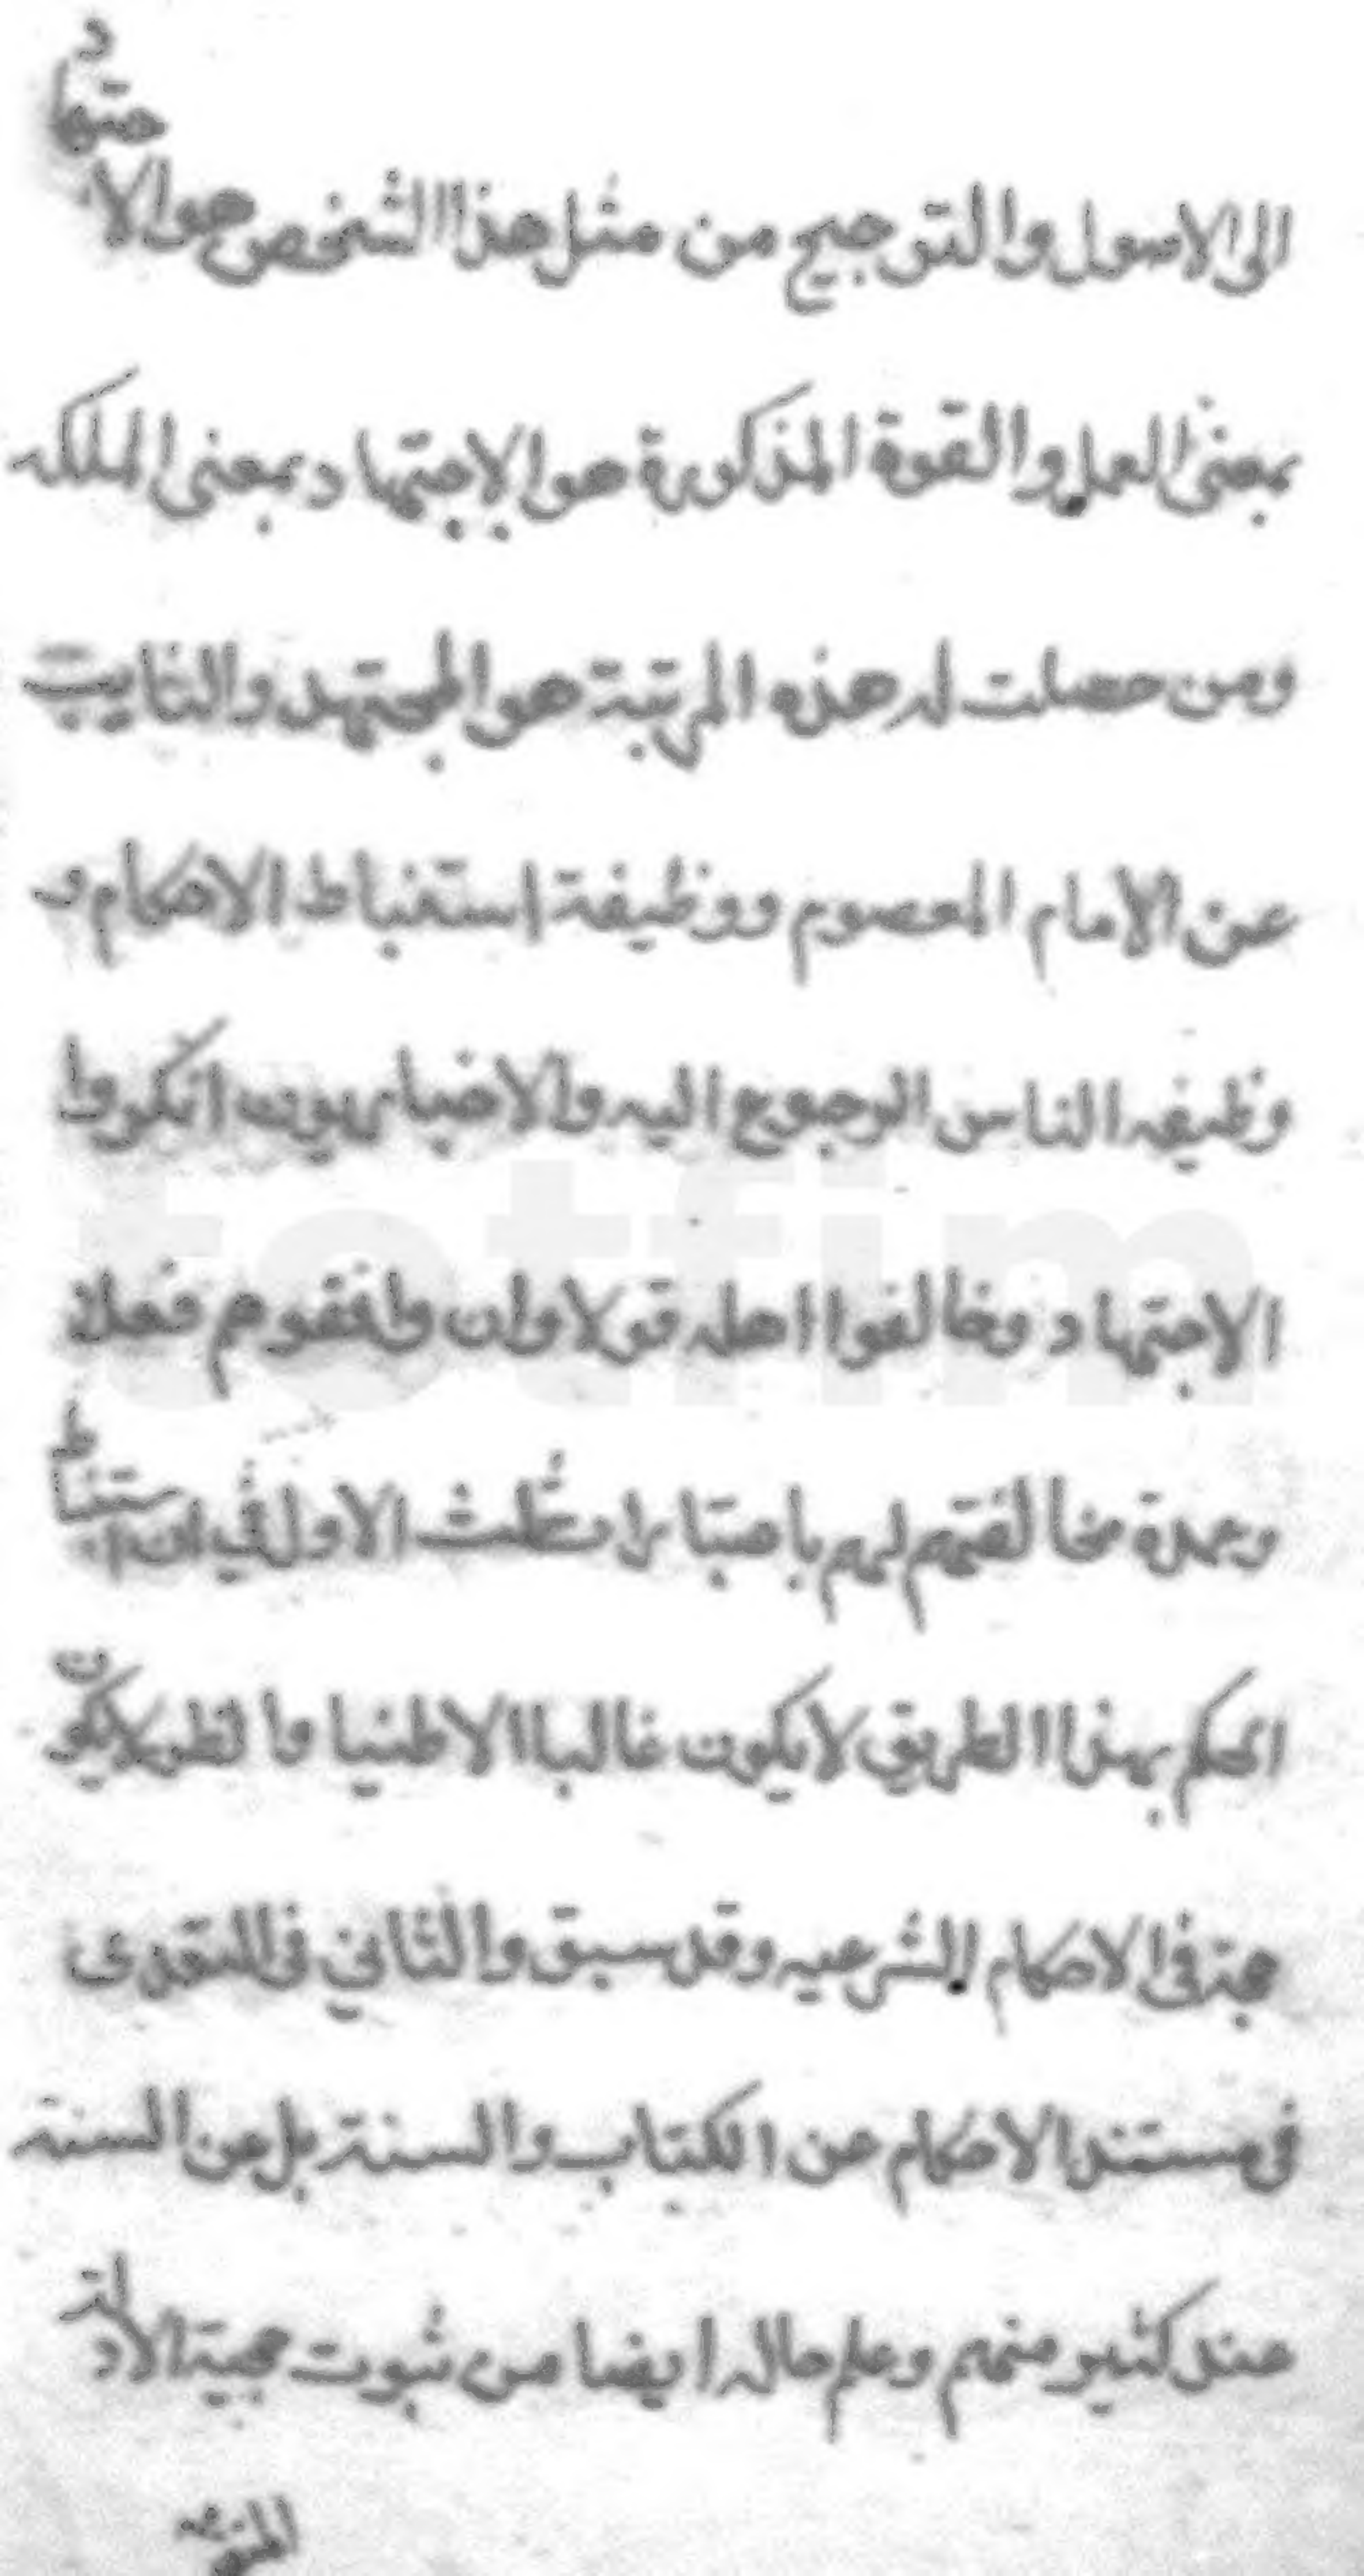 الى الاصول والترجيح من مثل هذا الشخص هو الاجتهاد
بمعنى العمل والقوة المذكورة هو الاجتهاد بمعنى الملكه
ومن حصلت له هذه المرتبة هو المجتهد والنايب
عن الامام المعصوم ووظيفة استنباط الاحكام و
وظيفه الناس الرجوع اليه والاخباريون انكروا
الاجتهاد وخالفوا اهله قولا وان وافقوهم فعلا
وعمدة مخالفتهم لهم باعتبارات ثلث الاول في ان استنباط
الحكم بهذا الطريق لا يكون غالبا الا ظنيا والظن لا يكون
حجة فى الاحكام الشرعيه وقد سبق والثاني فى التعدى
فى مستند الاحكام عن الكتاب والسنة بل عن السنة
عند كثير منهم وعلم حاله ايضا من ثبوت حجية الادلة